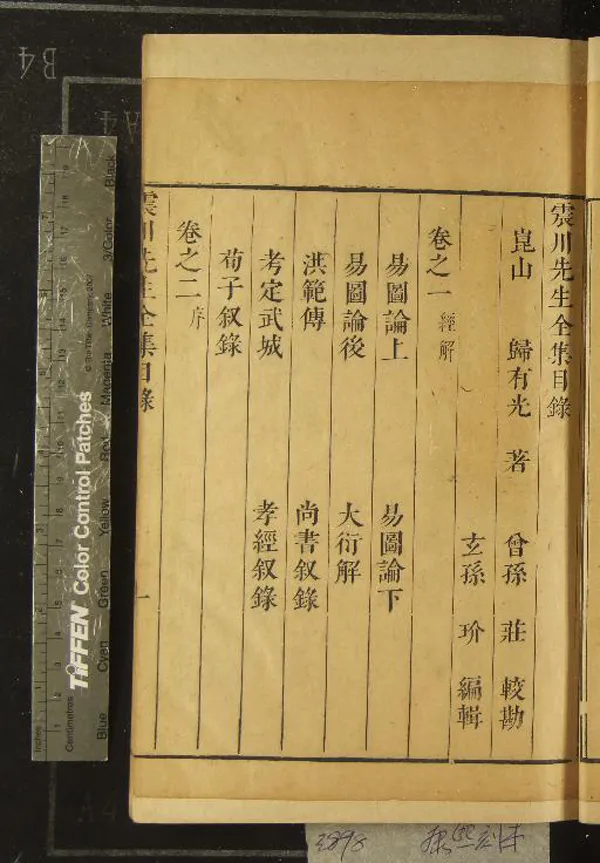 震川先生全集目錄
崑山 歸有光 著 曾孫 莊 較勘
玄孫 玠 編輯
卷之一 經解
易圖論上 易圖論下
易圖論後 大衍解
洪範傳 尚書叙錄
考定武城 孝經叙錄
荀子叙錄
卷之二 序
震川先生全集目錄
一
B4
A4
TIFFEN Color Control Patches
© The Tiffen Company, 2007
Inches
Centimetres
Blue Cyan Green Yellow Red Magenta White 3/Color Black
A4
3898 康熙刻本